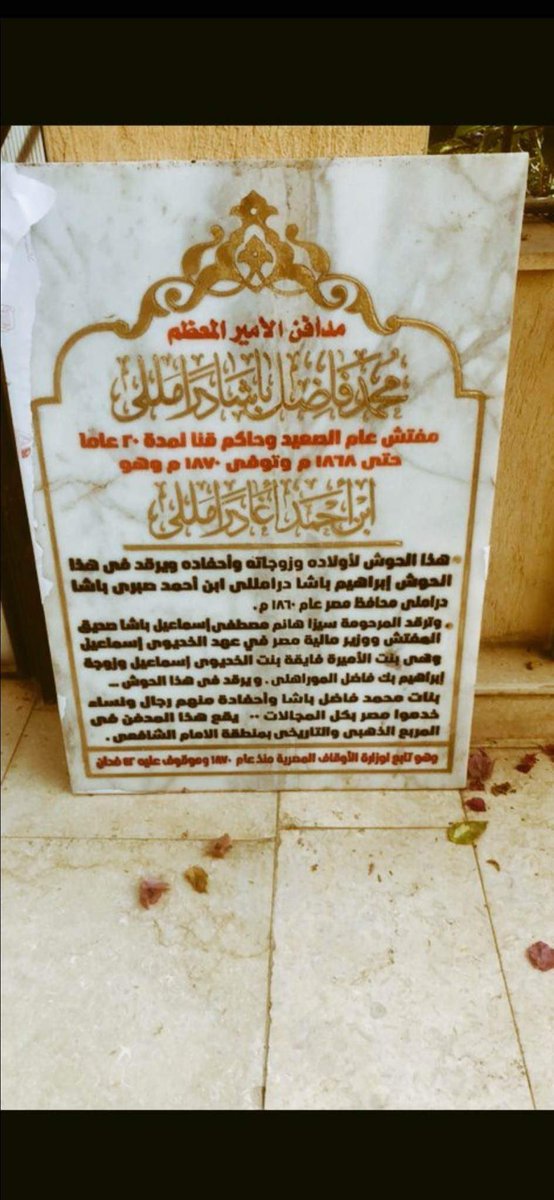 مدافن الأمير المعظم
محمد فاضل باشا دراملى
مفتش عام الصعيد وحاكم قنا لمدة ٢٠ عاما
حتى ١٨٦٨ م وتوفى ١٨٧٠ م وهو
ابن أحمد أغا دراملى
هذا الحوش لأولاده وزوجاته وأحفاده ويرقد فى هذا
الحوش إبراهيم باشا دراملى ابن أحمد صبرى باشا
دراملى محافظ مصر عام ١٨٦٠ م .
وترقد المرحومة سيزا هانم مصطفى إسماعيل باشا صديق
المفتش ووزير مالية مصر في عهد الخديوى إسماعيل
وهى بنت الأميرة فايقة بنت الخديوى إسماعيل وزوجة
إبراهيم بك فاضل الدوراهلى . ويرقد فى هذا الحوش ...
بنات محمد فاضل باشا وأحفادة منهم رجال ونساء
خدموا مصر بكل المجالات .. يقع هذا المدفن فى
المربع الذهبى والتاريخى بمنطقة الامام الشافعى .
وهو تابع لوزارة الأوقاف المصرية منذ عام ١٨٧٠ وموقوف عليه ٤٢ فدان